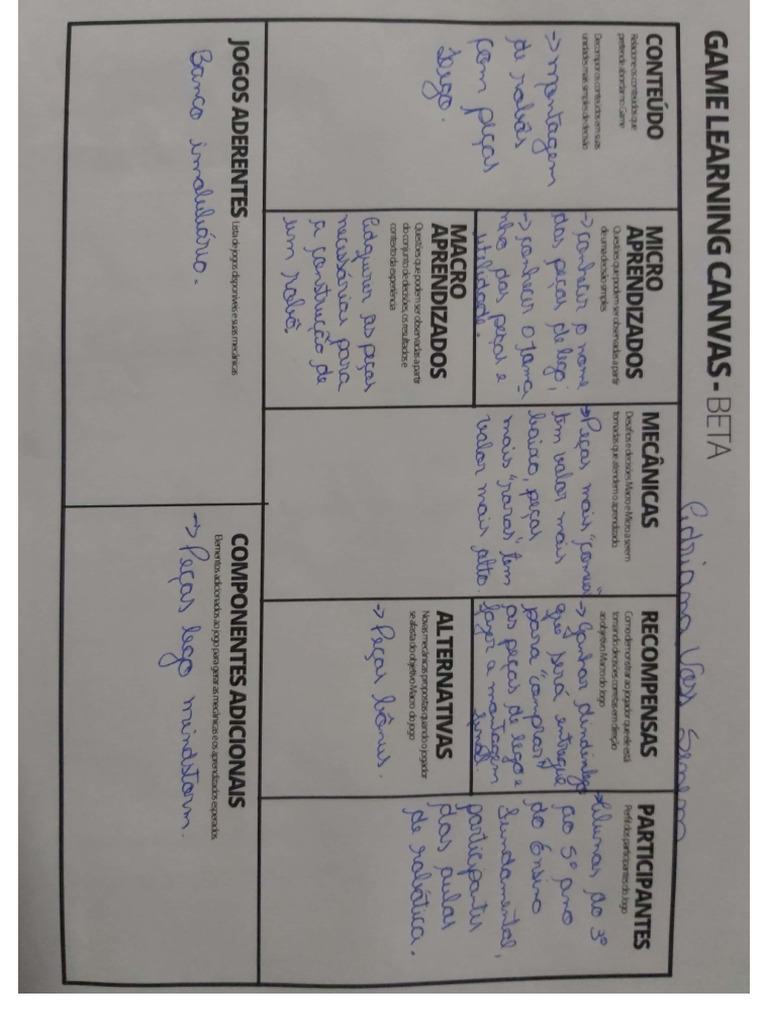 GAME LEARNING CANVAS - BETA
Adriana Vass
CONTEÚDO
Relacione os conteúdos que
pretende abordar no Game
Decompor os conteúdos em suas
unidades mais simples de decisão
-> montagem
de robôs
com peças
lego.
MICRO
APRENDIZADOS
Questões que podem ser observadas a partir
de uma decisão simples
-> conhecer o nome
das peças de lego;
-> conhecer o tama
nho das peças e
utilidade.
MACRO
APRENDIZADOS
Questões que podem ser observadas a partir
do conjunto de decisões, os resultados e
contexto da experiência
Adquirir as peças
necessárias para
a construção de
um robô.
MECÂNICAS
Desafios e decisões Macro e Micro a serem
tomadas que atendem o aprendizado
-> Peças mais "comuns"
tem valor mais
baixo, peças
mais "raras" tem
valor mais alto.
RECOMPENSAS
Como demonstrar ao jogador que ele está
tomando decisões corretas em direção
ao objetivo Macro do Jogo
-> Ganhar dindin lego
que será entregue
para "comprar"
as peças de lego e
fazer a montagem
final.
ALTERNATIVAS
Novas mecânicas propostas quando o jogador
se afasta do objetivo Macro do jogo
-> Peças bônus.
PARTICIPANTES
Perfil dos participantes do Jogo
-> Alunos do 3º
ao 5º ano
do Ensino
Fundamental,
participantes
das aulas
de robótica.
JOGOS ADERENTES Lista de jogos disponíveis e suas mecânicas
Banco imobiliário.
COMPONENTES ADICIONAIS
Elementos adicionados ao jogo para gerar as mecânicas e os aprendizados esperados
-> Peças lego mindstorm.